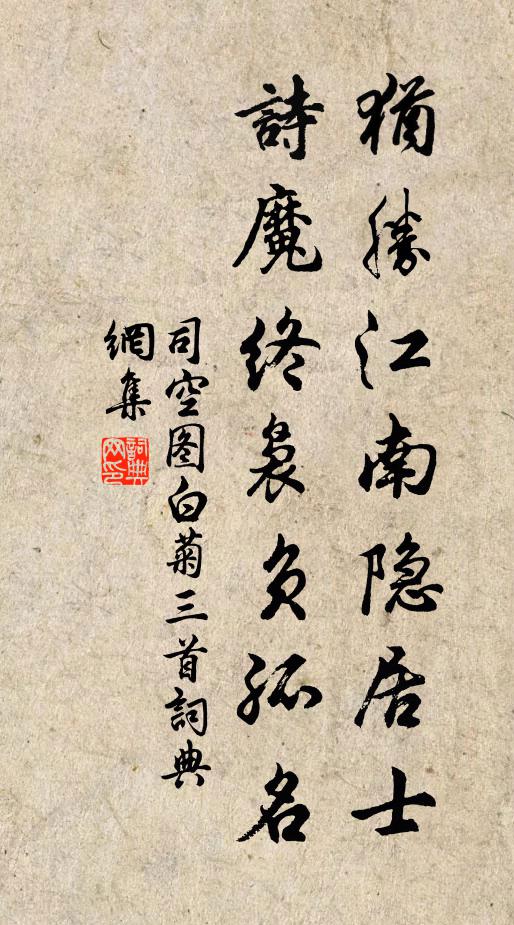 猶勝江南隐居士
詩魔終裊负孤名
司空图白菊三首詞典
網集
詞典
网印